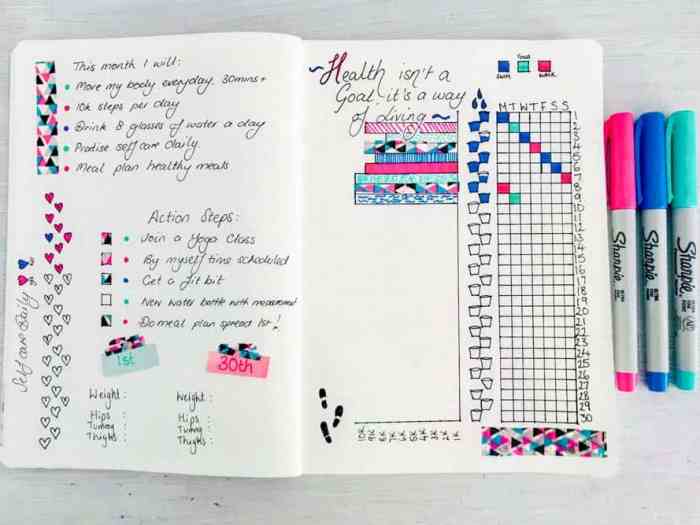 This month I will:
Move my body everyday. 30mins+
10k steps per day
Drink 8 glasses of water a day
Practise self care daily.
Meal plan healthy meals
Action Steps:
Join a Yoga Class
By myself time scheduled
Get a fit bit
New water bottle with measurement
Do meal plan spread 1st!
Self care Daily
1st
30th
Weight :
Hips :
Tummy :
Thighs :
Weight :
Hips :
Tummy :
Thighs :
Health isn't a
Goal.. it's a way
of living
SWIM
YOGA
WALK
M T W T F S S
1
2
3
4
5
6
7
8
9
10
11
12
13
14
15
16
17
18
19
20
21
22
23
24
25
26
27
28
29
30
10K 9K 8K 7K 6K 5K 4K 3K 2K 1K
Sharpie
Sharpie
Sharpie